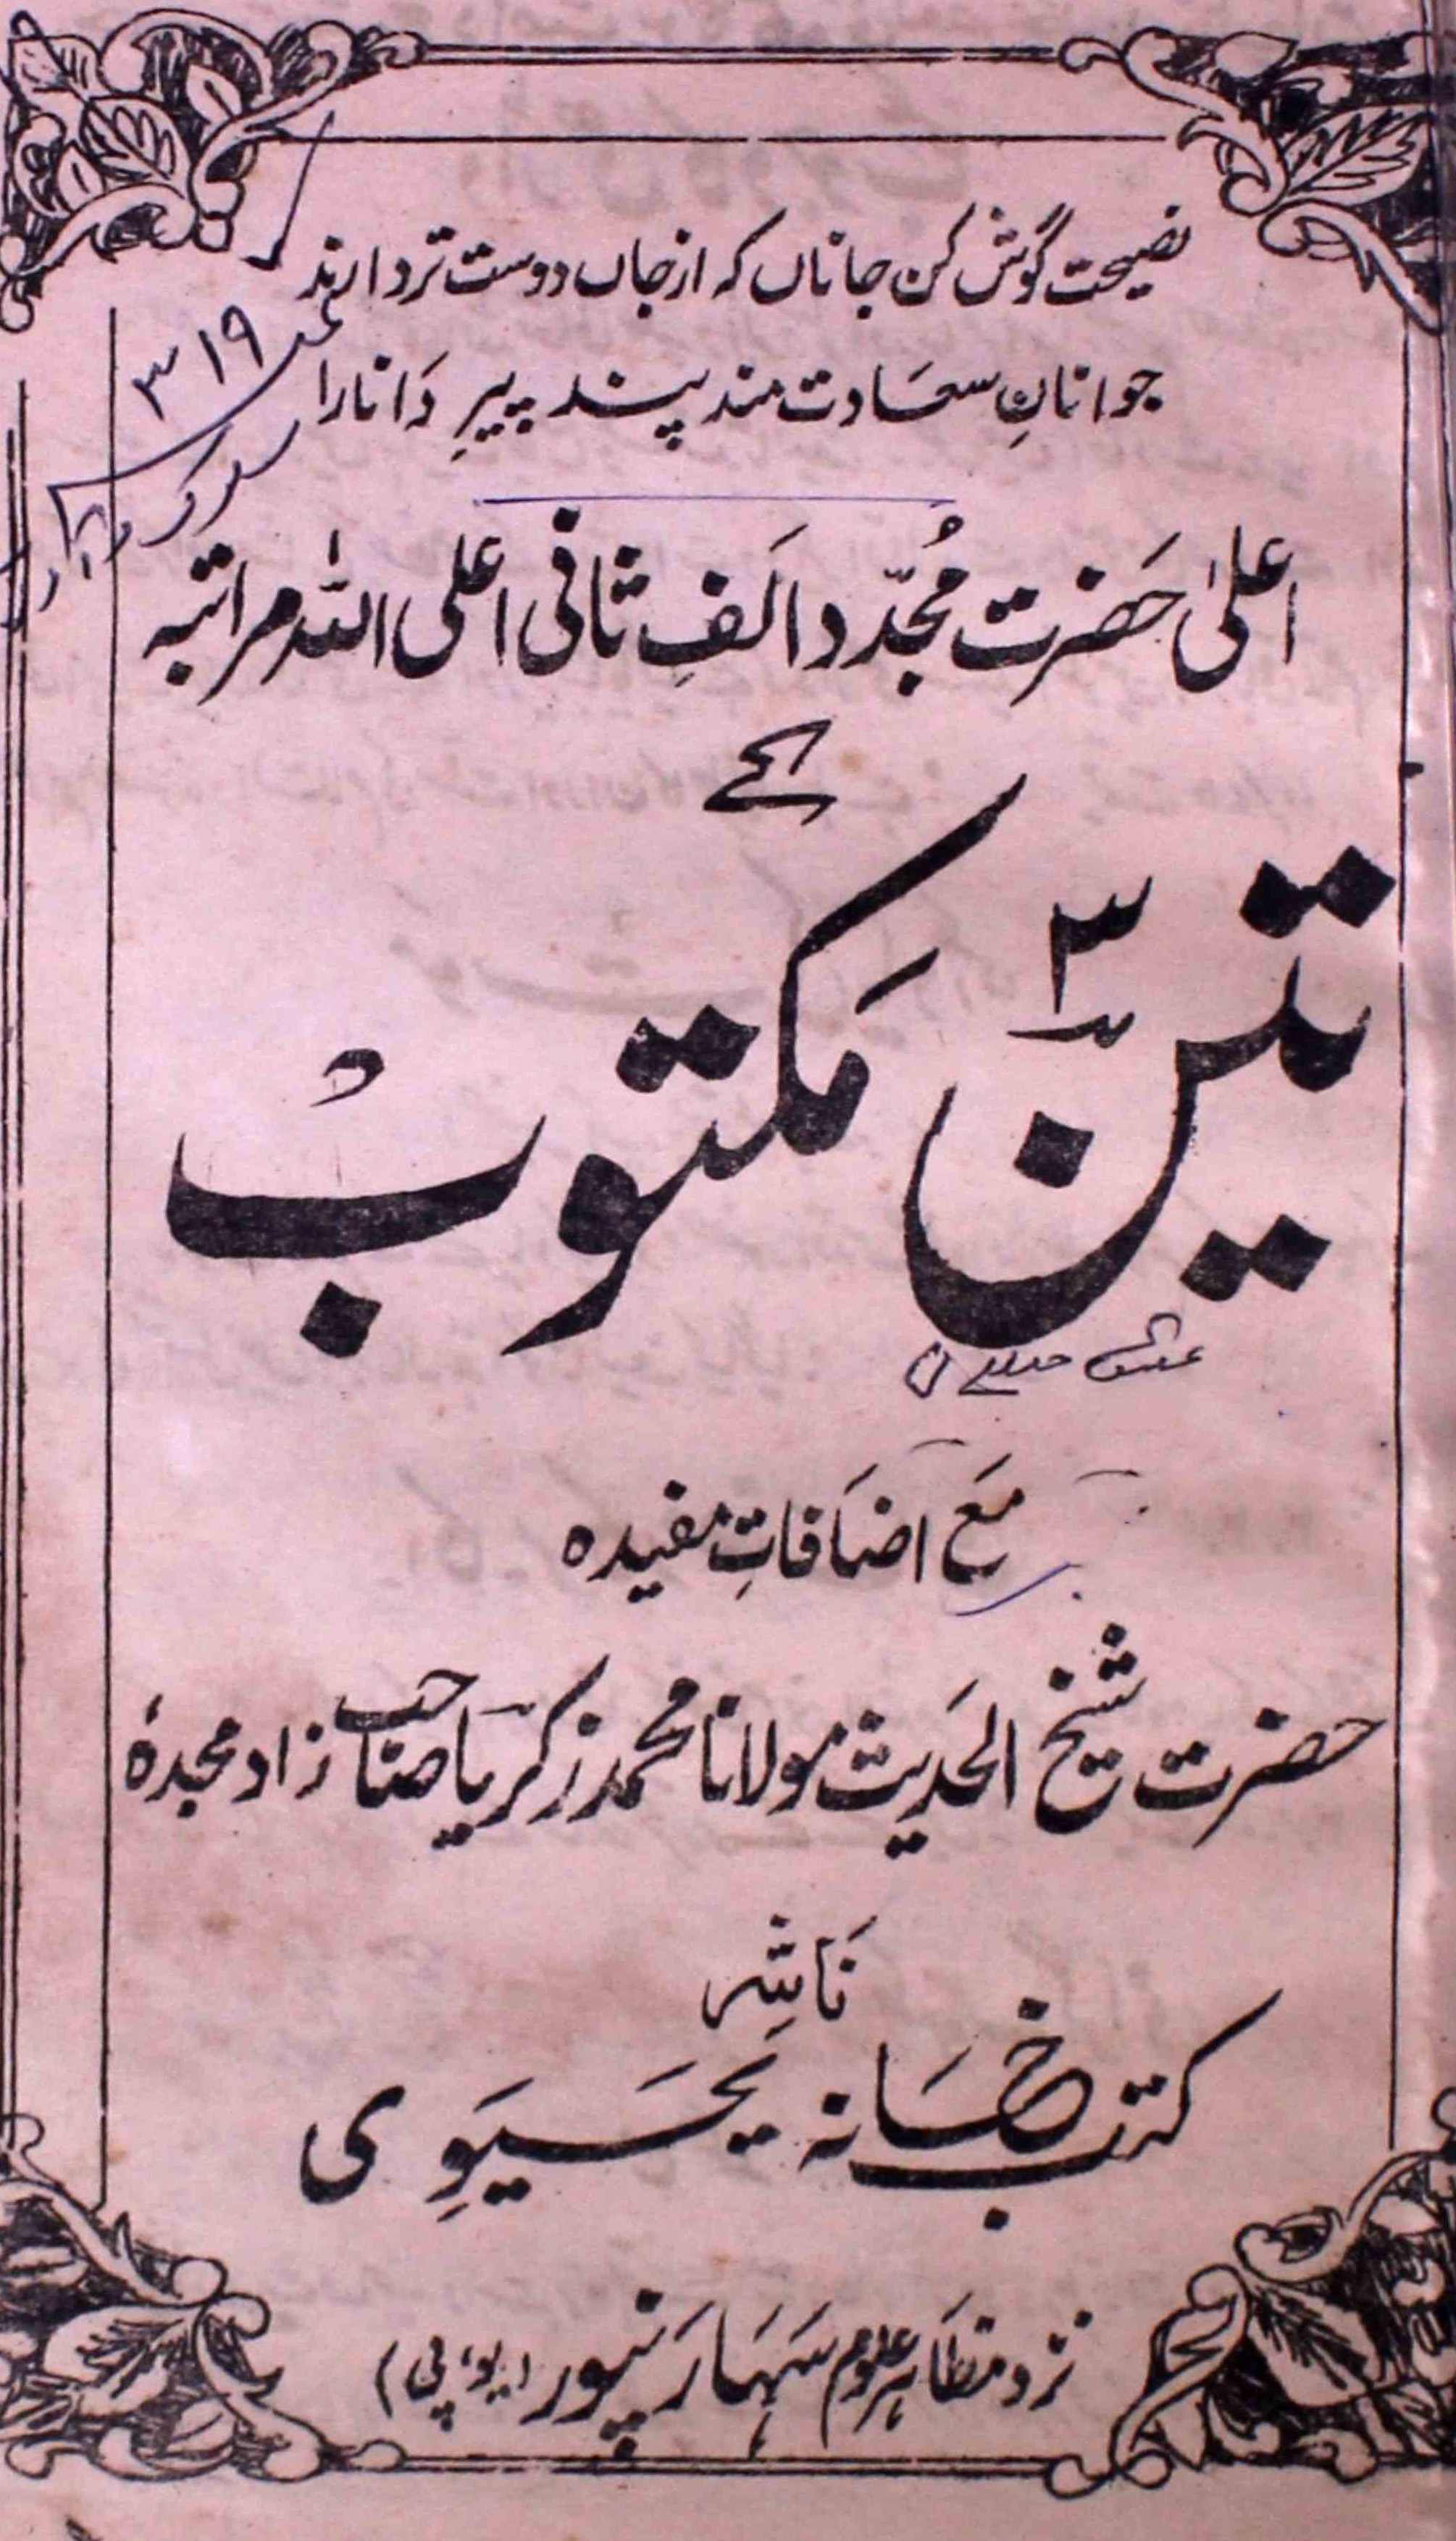 نصیحت گوش کن جاناں کہ از جاں دوست تر دارند
جوانانِ سعَادت مند پندِ پیرِ دَانا را
۳۱۹
اعلیٰ حَضرت مُجدّد الَفِ ثانی اعلی اللہ مراتبہ
کے
تین ۳ مَکتوبْ
مَع اضَافاتِ مفیدہ
حضرت شیخ الحَدیث مولانا محمد زکریا صَاحب زاد مجدہٗ
نَاشِر
کتب خَانہ یَحیَوِی
نزد مظَاہر علوم سَہَارَنپور (یو، پی)